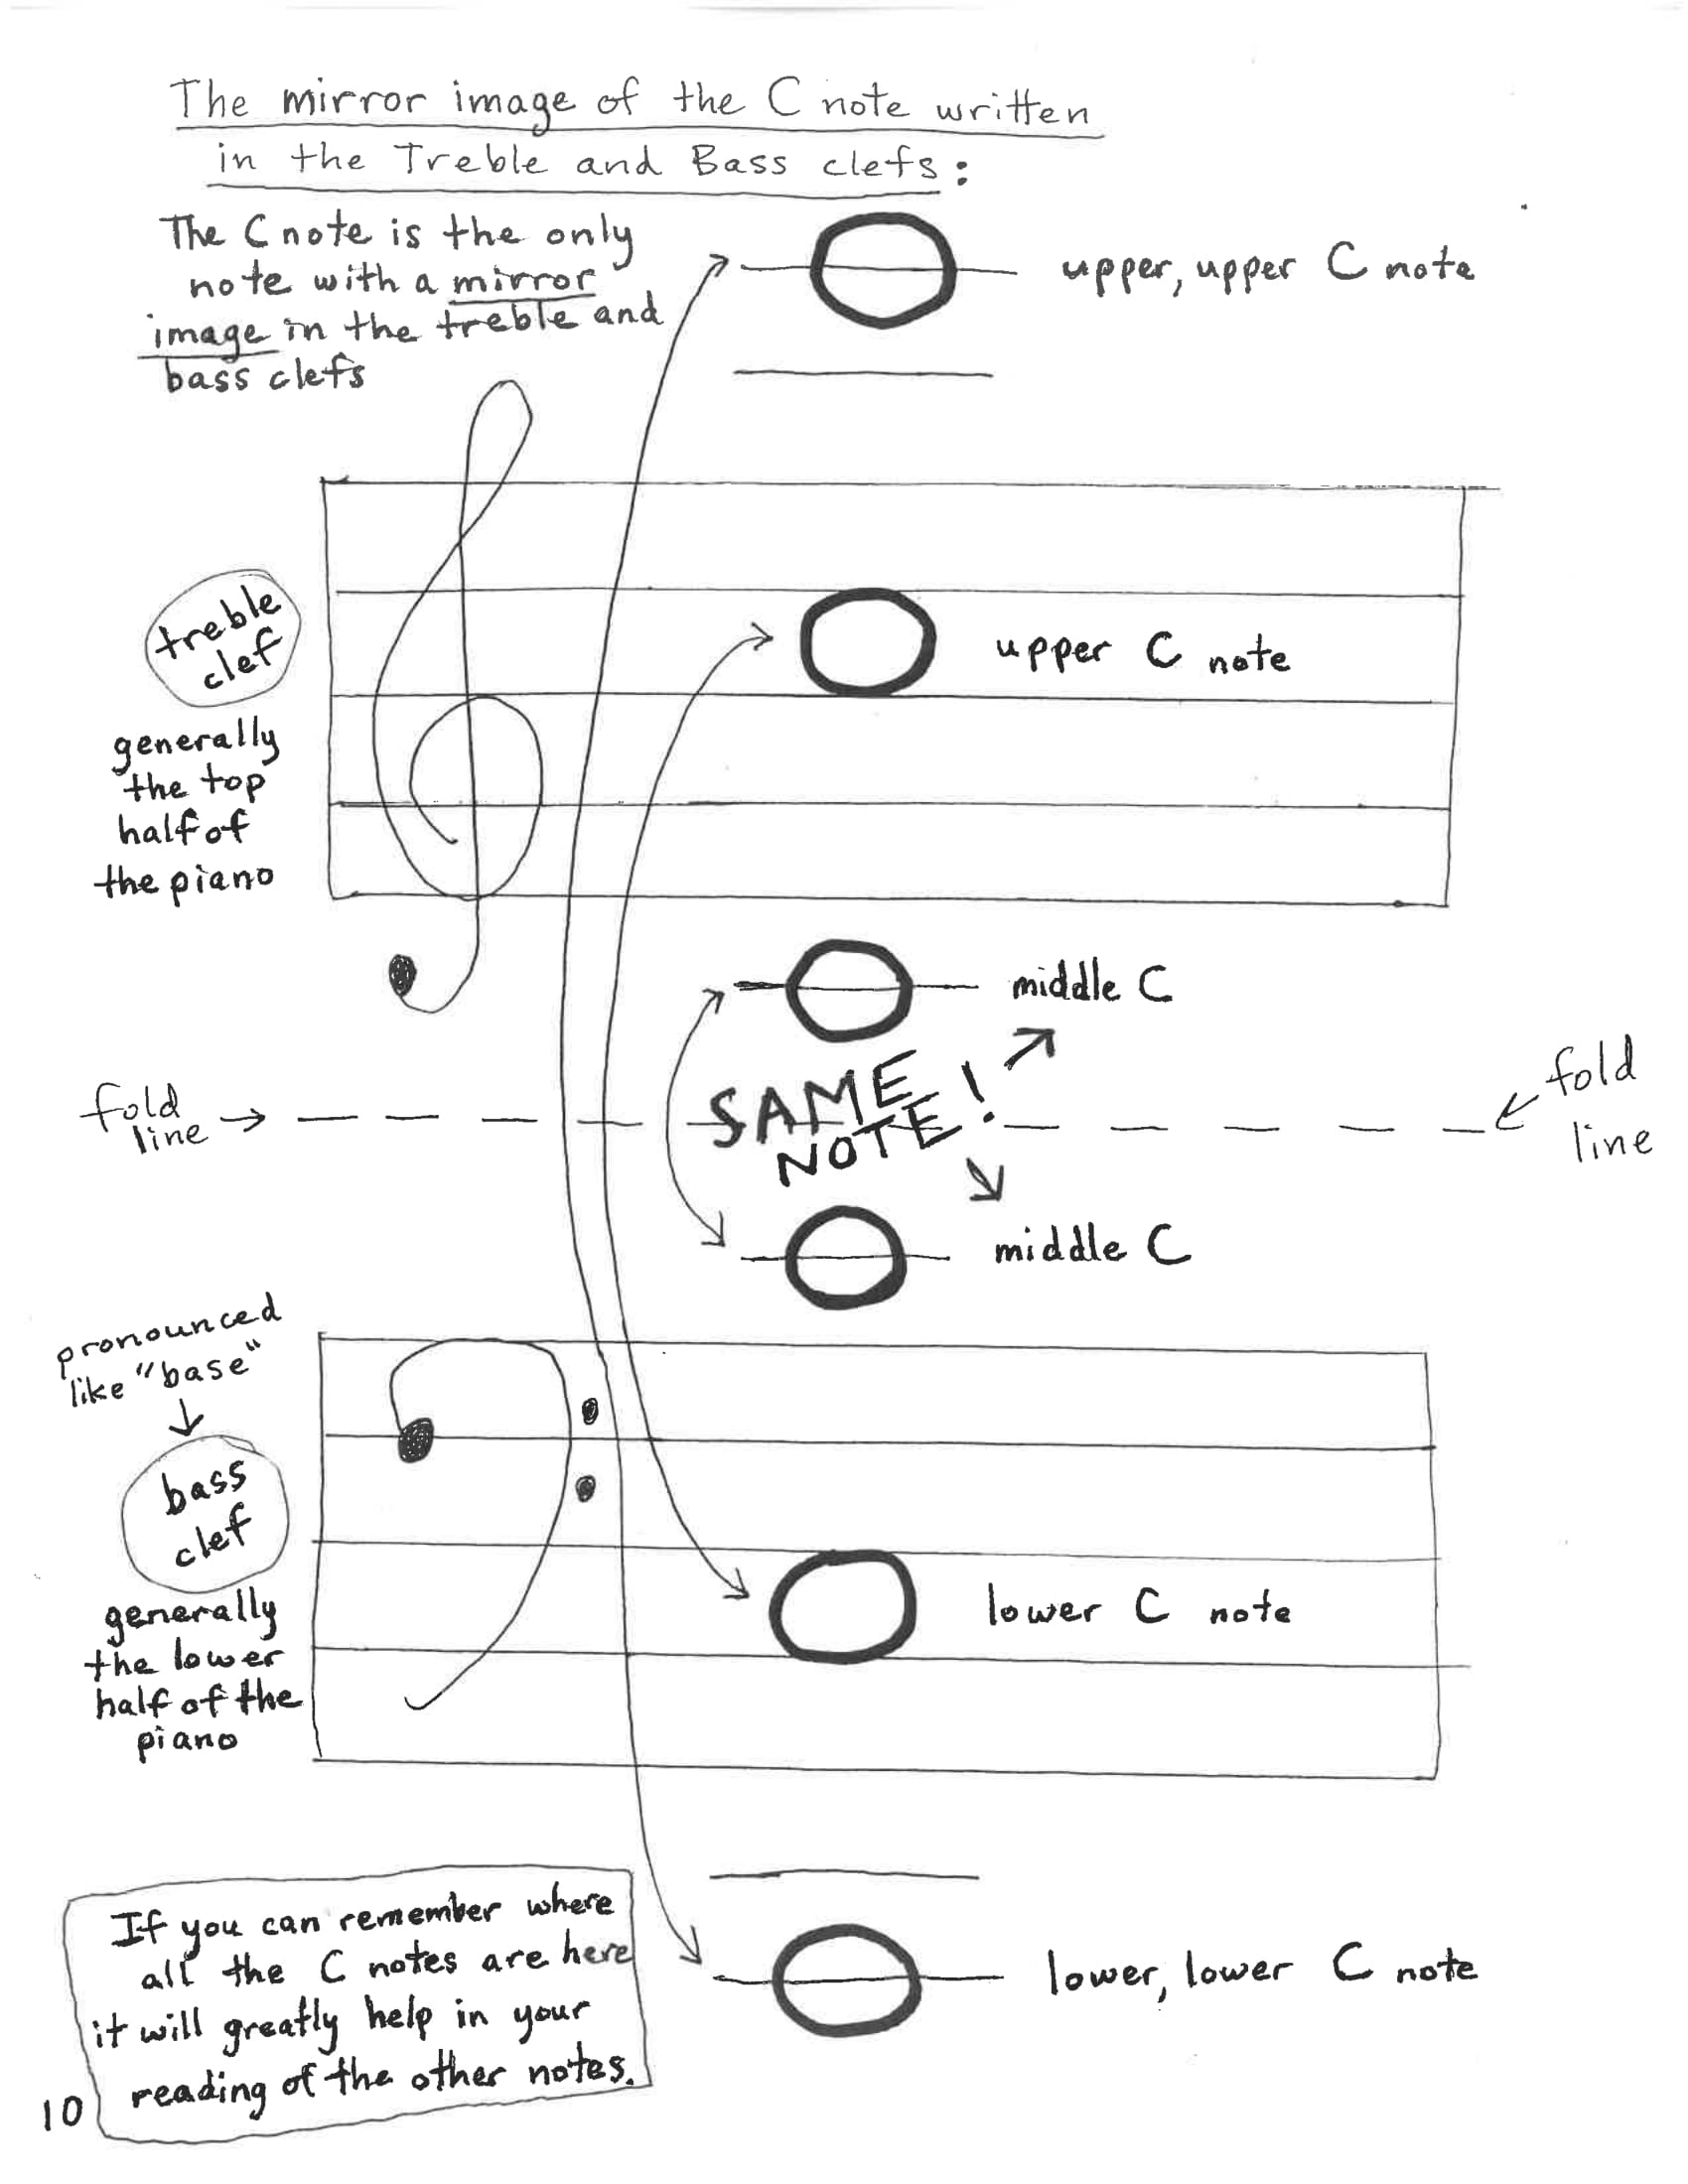 The mirror image of the C note written
in the Treble and Bass clefs:
The C note is the only
note with a mirror
image in the treble and
bass clefs
upper, upper C note
treble
clef
upper C note
generally
the top
half of
the piano
middle C
SAME
NOTE!
fold
line
fold
line
middle C
pronounced
like "base"
bass
clef
lower C note
generally
the lower
half of the
piano
If you can remember where
all the C notes are here
it will greatly help in your
reading of the other notes.
lower, lower C note
10